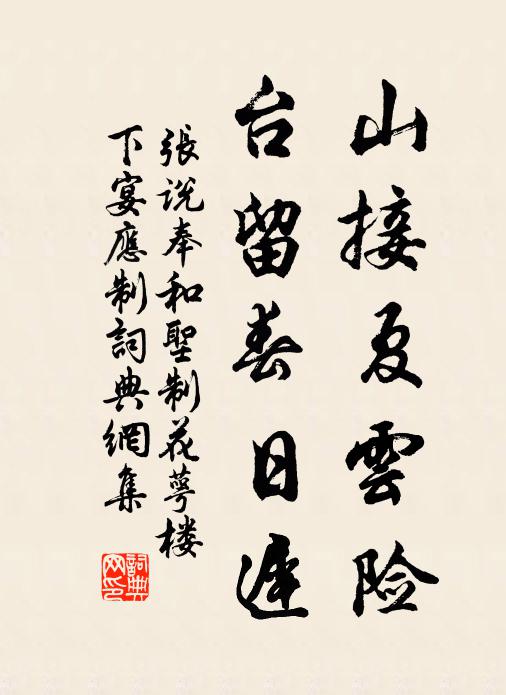 山接夏雲险
台留春日遲
張说奉和聖制花萼楼
下宴應制詞典網集
詞典
网印